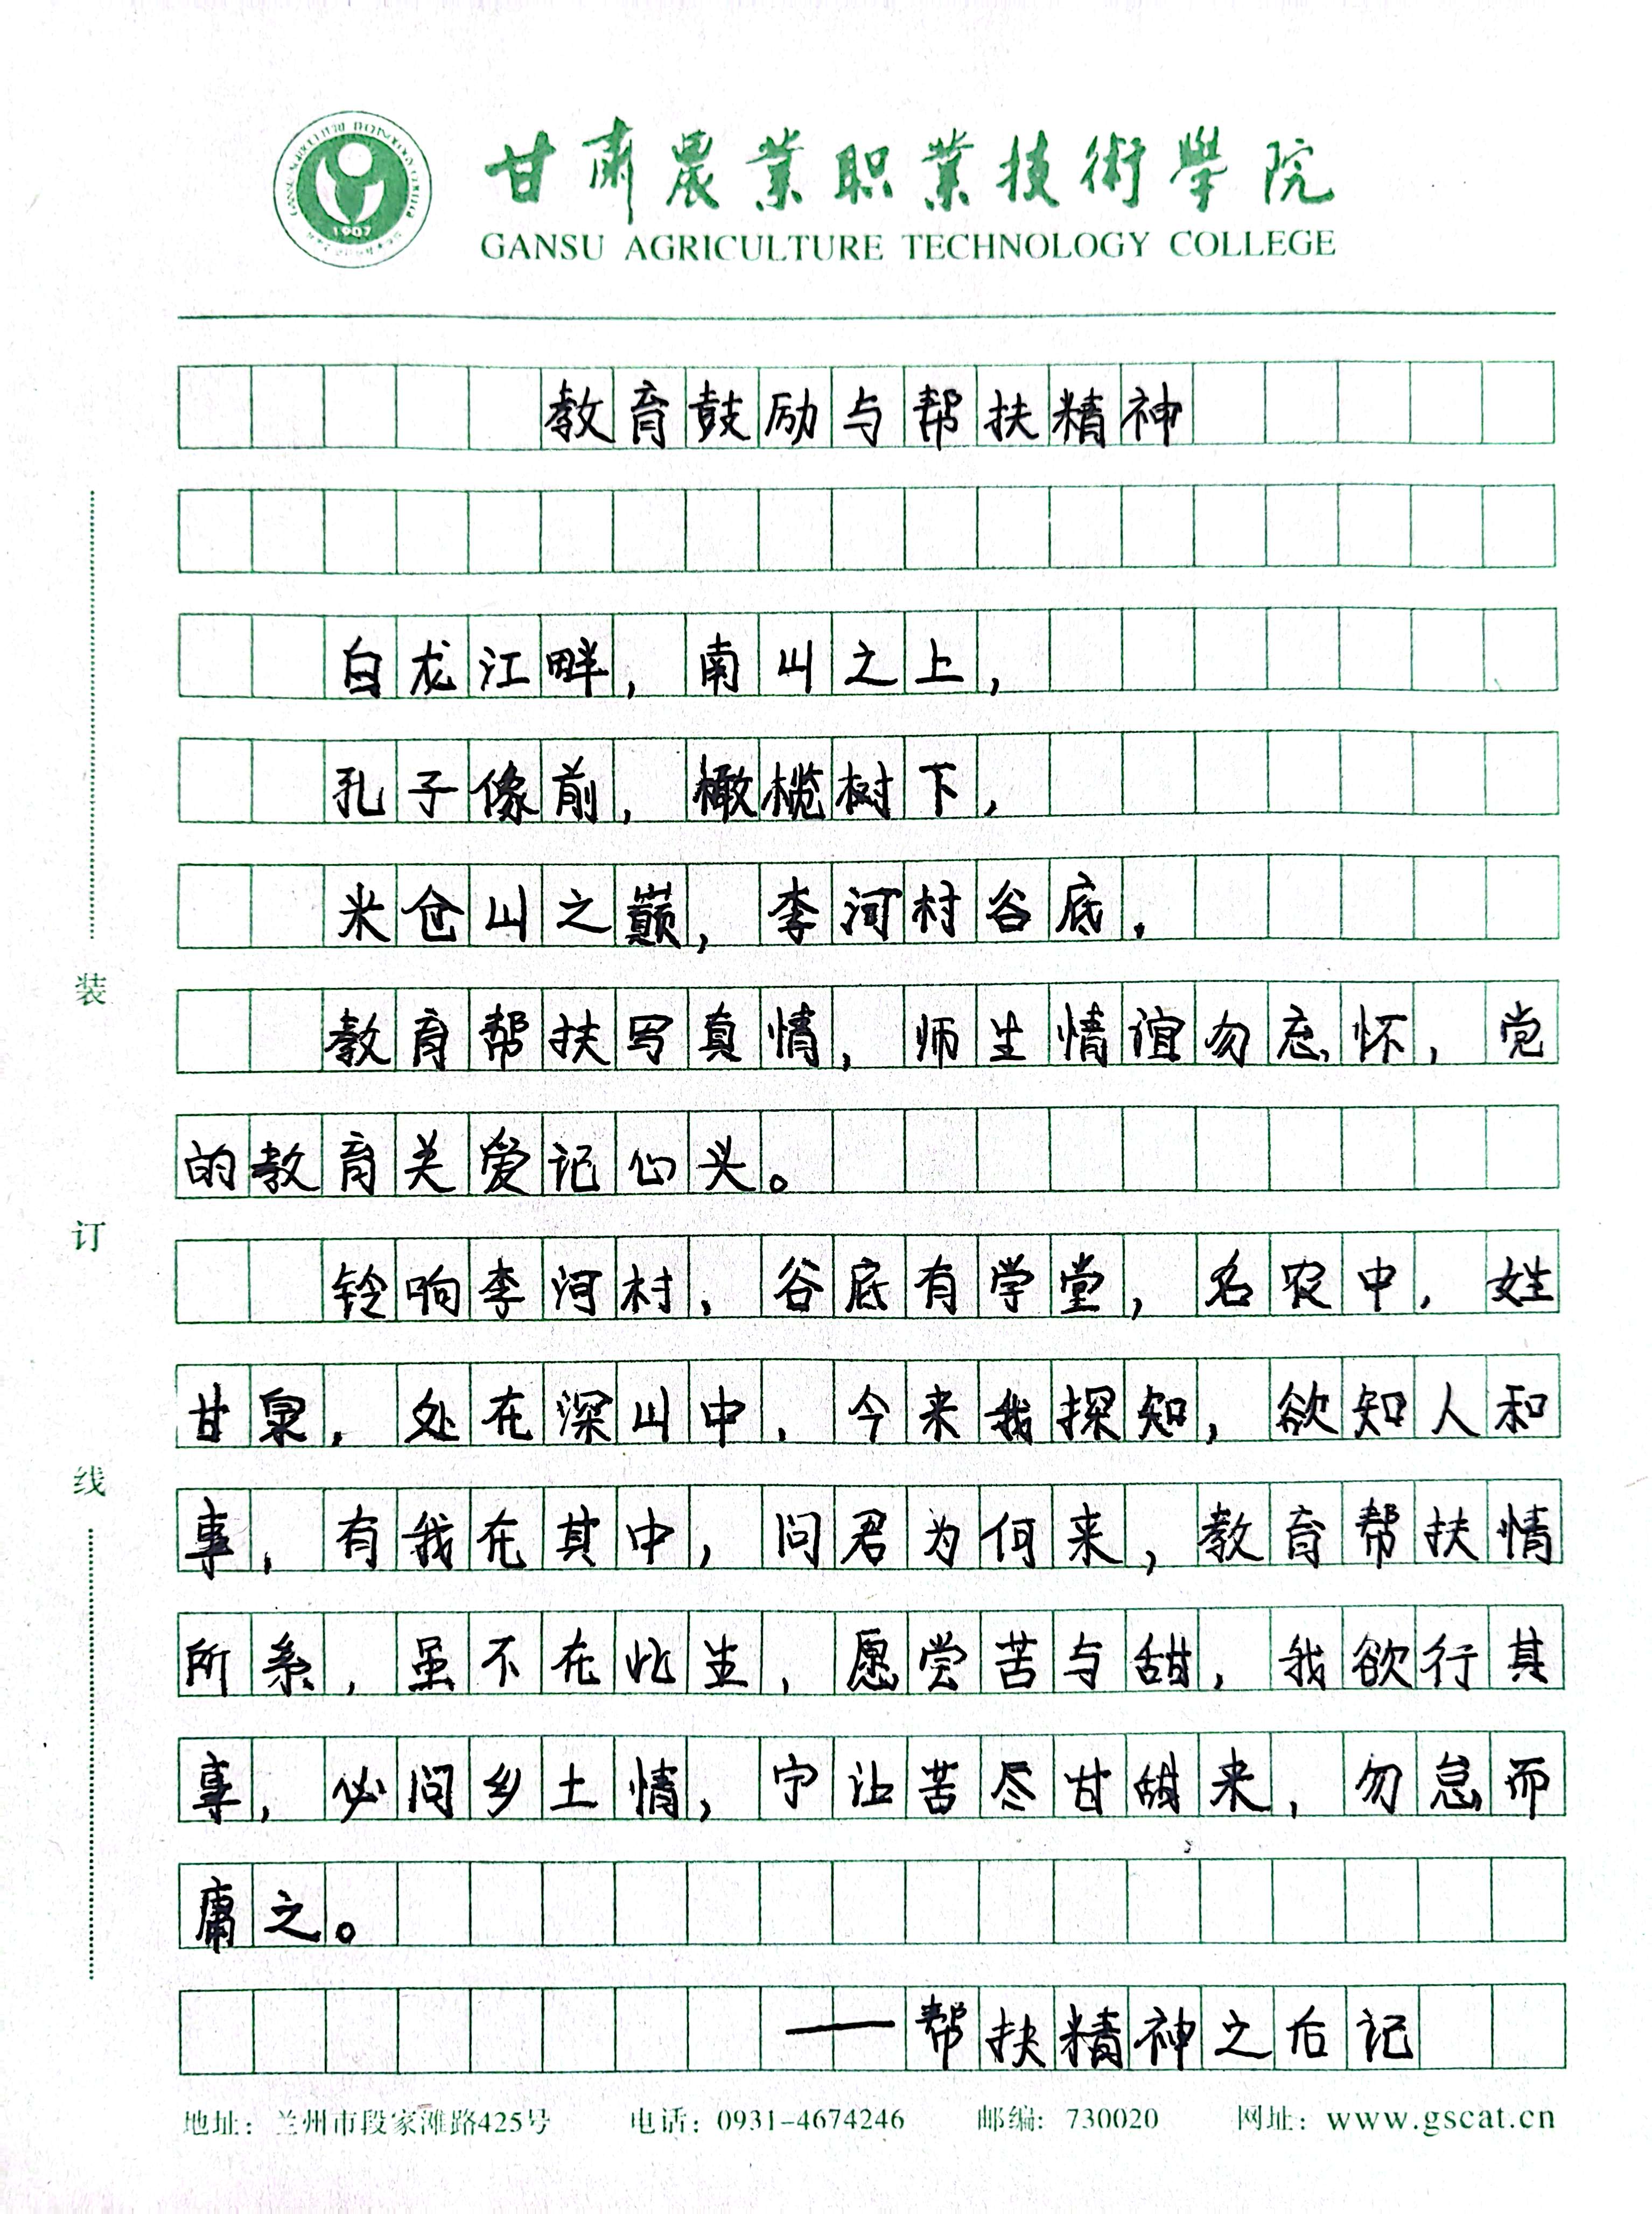 甘肃農業职業技術學院
GANSU AGRICULTURE TECHNOLOGY COLLEGE
1907
教育鼓励与帮扶精神
白龙江畔，南山之上，
孔子像前，橄榄树下，
米仓山之巅，李河村谷底，
教育帮扶写真情，师生情谊勿忘怀，党
的教育关爱记心头。
铃响李河村，谷底有学堂，名农中，姓
甘泉，处在深山中，今来我探知，欲知人和
事，有我在其中，问君为何来，教育帮扶情
所系，虽不在此生，愿尝苦与甜，我欲行其
事，必问乡土情，宁让苦尽甘甜来，勿怠而
庸之。
——帮扶精神之后记
装
订
线
地址：兰州市段家滩路425号 电话：0931-4674246 邮编：730020 网址：www.gscat.cn